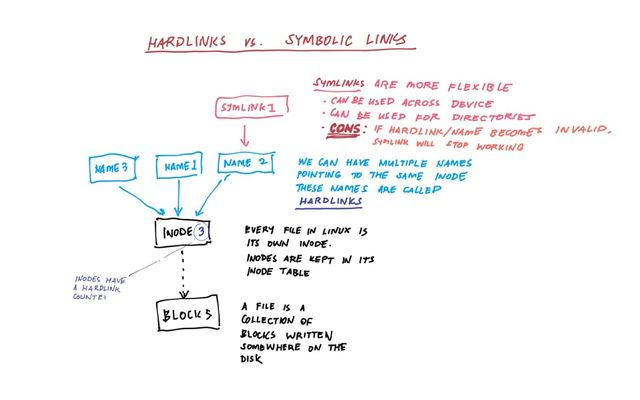 HARDLINKS vs. SYMBOLIC LINKS
SYMLINKS ARE MORE FLEXIBLE
· CAN BE USED ACROSS DEVICE
· CAN BE USED FOR DIRECTORIES
· CONS: IF HARDLINK/NAME BECOMES INVALID,
SYMLINK WILL STOP WORKING
SYMLINK 1
NAME 3
NAME 1
NAME 2
WE CAN HAVE MULTIPLE NAMES
POINTING TO THE SAME INODE
THESE NAMES ARE CALLED
HARDLINKS
INODE 3
EVERY FILE IN LINUX IS
ITS OWN INODE.
INODES ARE KEPT IN ITS
INODE TABLE
INODES HAVE
A HARDLINK
COUNTER
BLOCKS
A FILE IS A
COLLECTION OF
BLOCKS WRITTEN
SOMEWHERE ON THE
DISK